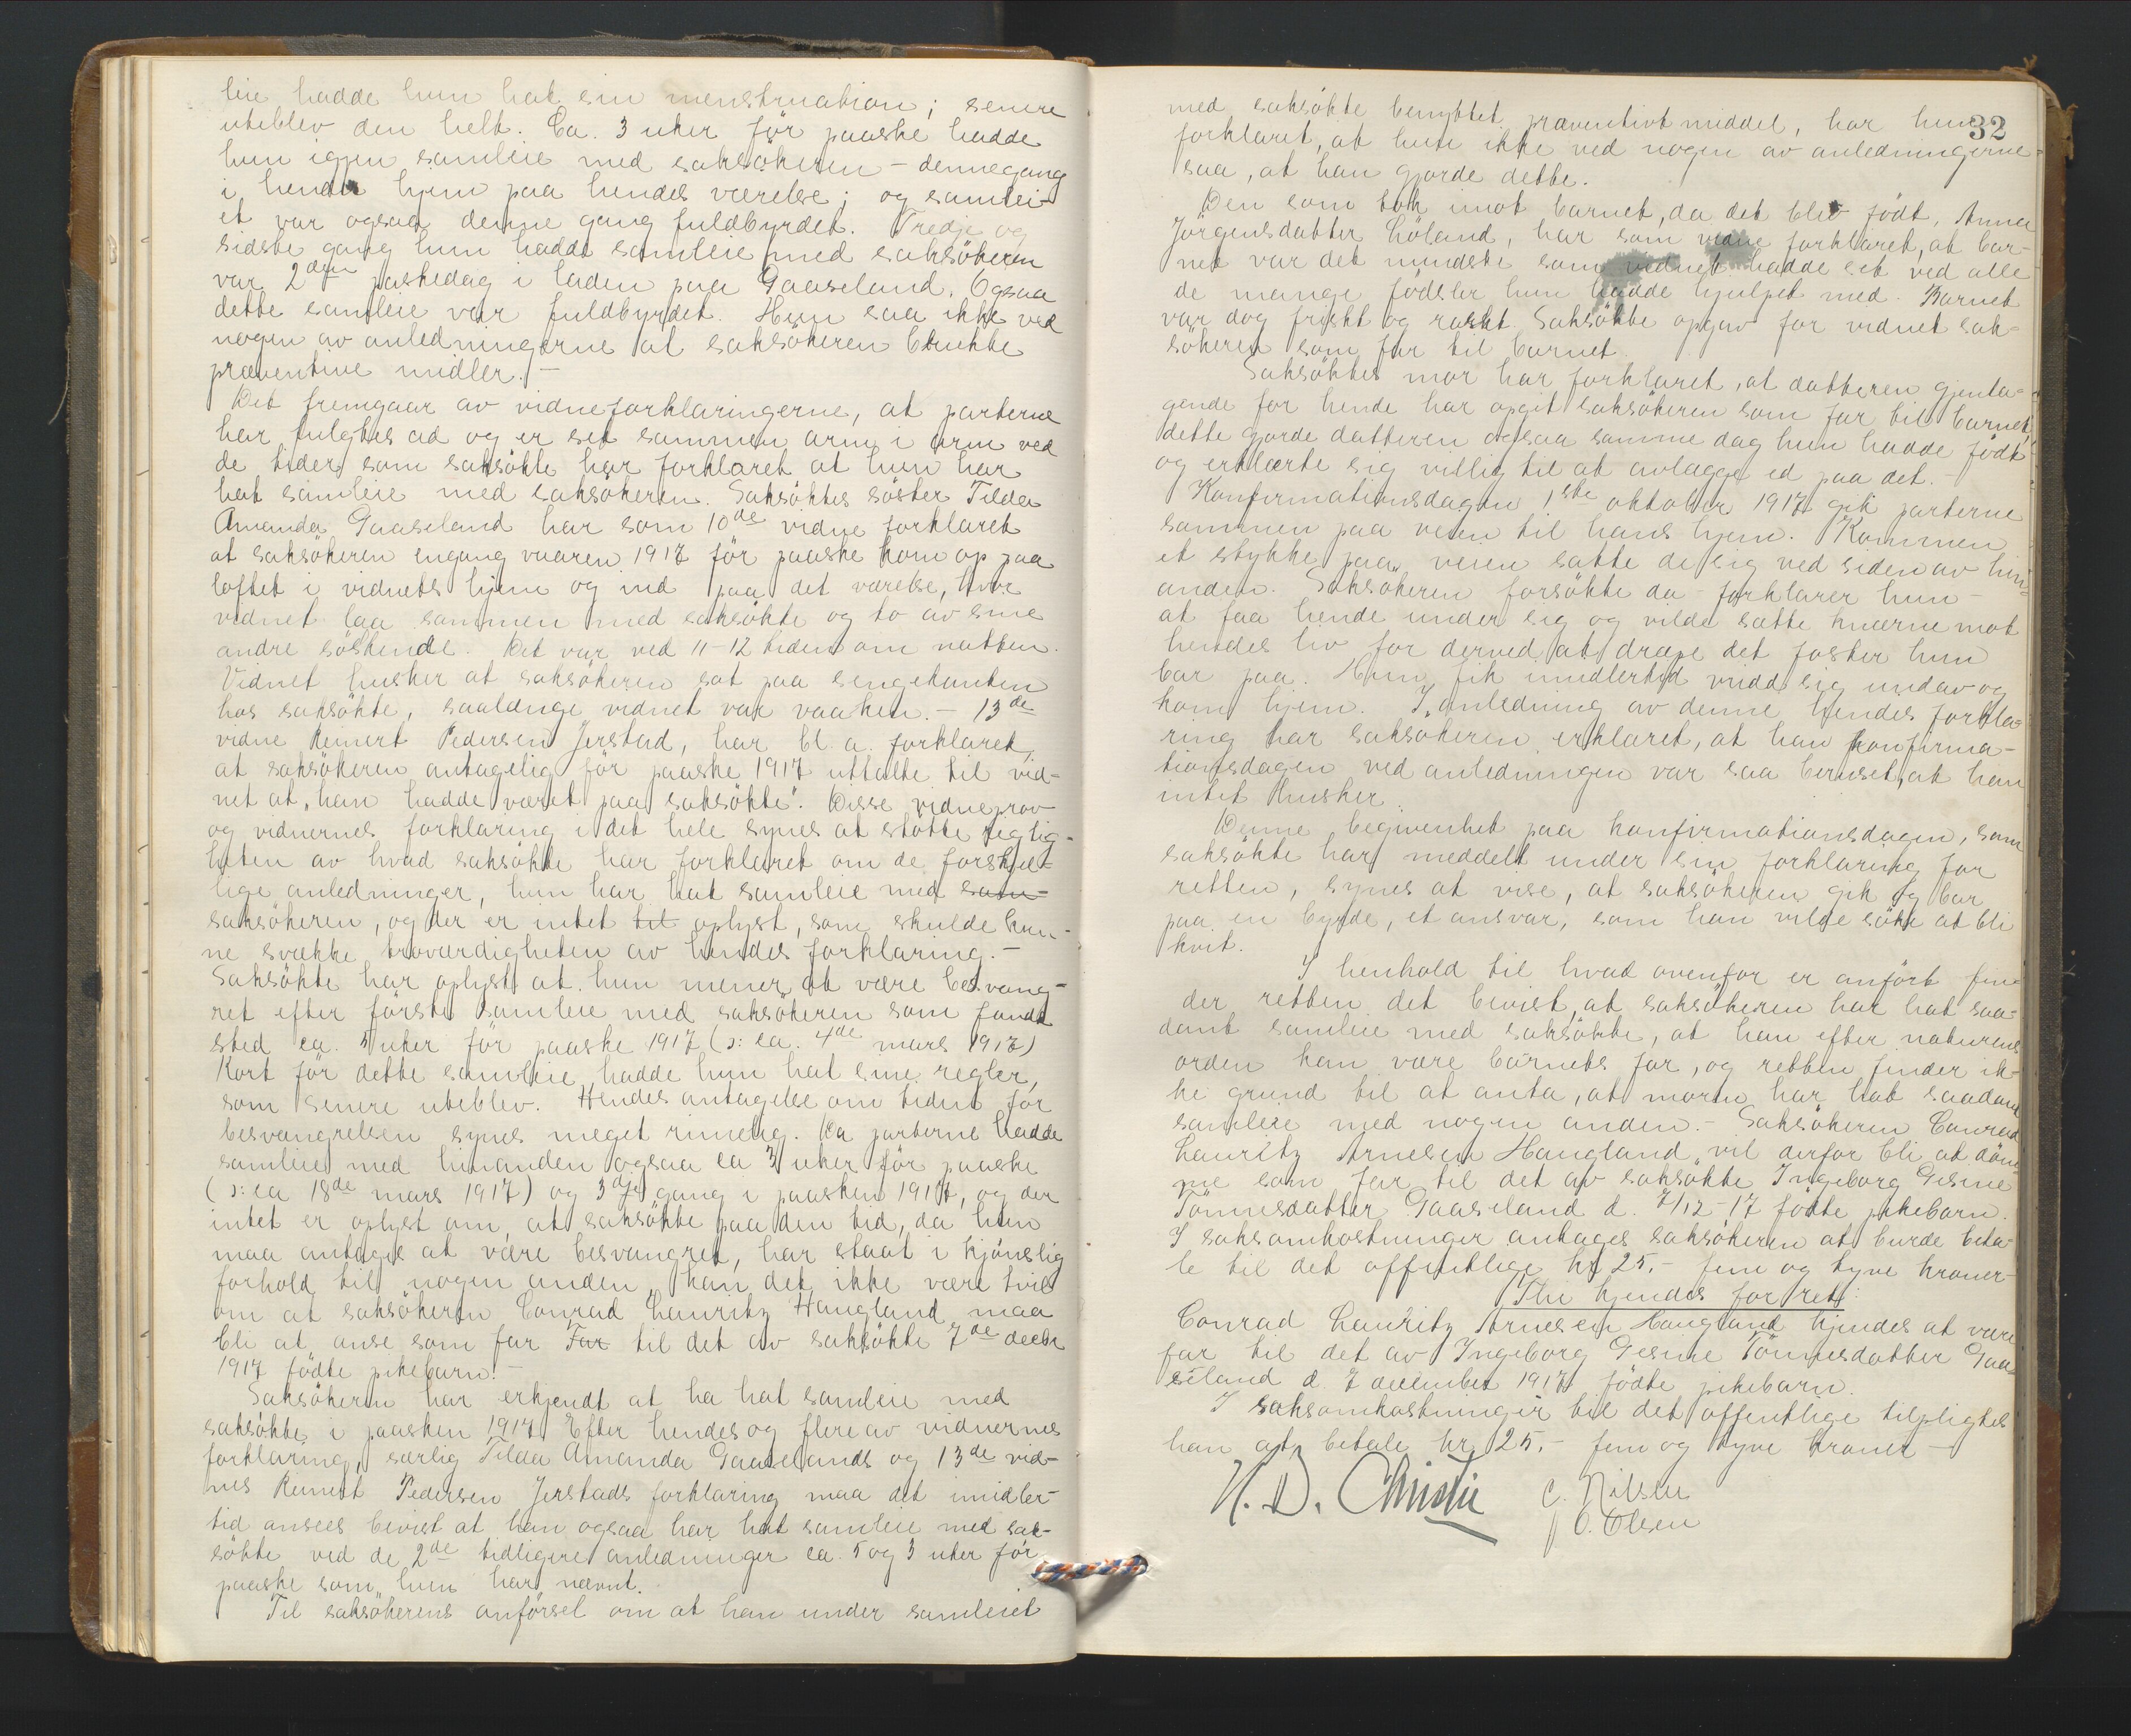 leie hadde hun hat sin menstruation; senere
uteblev den helt. Ca. 3 uker før paaske hadde
hun igjen samleie med saksøkeren - dennegang
i hendes hjem paa hendes værelse; og samlei-
et var ogsaa denne gang fuldbyrdet. Tredje og
sidste gang hun hadde samleie med saksøkeren
var 2den paskedag i laden paa Gaaseland. Ogsaa
dette samleie var fuldbyrdet. Hun saa ikke ved
nogen av anledningerne at saksøkeren brukte
præventive midler. -
Det fremgaar av vidneforklaringerne, at parterne
har fulgtes ad og er set sammen arm i arm ved
de tider, som saksøkte har forklaret at hun har
hat samleie med saksøkeren. Saksøktes søster Tilda
Amanda Gaaseland har som 10de vidne forklaret
at saksøkeren engang vaaren 1917 før paaske kom op paa
loftet i vidnets hjem og ind paa det værelse, hvor
vidnet laa sammen med saksøkte og to av sine
andre søskende. Det var ved 11-12 tiden om natten.
Vidnet husker at saksøkeren sat paa sengekanten
hos saksøkte, saalænge vidnet var vaaken. - 13de
vidne Reinert Pedersen Jerstad, har bl. a. forklaret,
at saksøkeren antagelig før paaske 1917 uttalte til vid-
net at "han hadde været paa saksøkte". Disse vidneprov
og vidnernes forklaring i det hele synes at støtte rigtig-
heten av hvad saksøkte har forklaret om de forskjel-
lige anledninger, hun har hat samleie med sam-
saksøkeren, og der er intet til oplyst, som skulde kun-
ne svække troværdigheten av hendes forklaring. -
Saksøkte har oplyst at hun mener at være besvang-
ret efter første samleie med saksøkeren som fandt
sted ca. 5 uker før paaske 1917 (ɔ: ca. 4de mars 1917)
Kort før dette samleie hadde hun hat sine regler,
som senere uteblev. Hendes antagelse om tiden for
besvangrelsen synes meget rimelig. Da parterne hadde
samleie med hinanden ogsaa ca 3 uker før paaske
(ɔ: ca 18de mars 1917) og 3dje gang i paasken 1917, og der
intet er oplyst om, at saksøkte paa den tid, da hun
maa antages at være besvangret, har staat i kjønslig
forhold til nogen anden, kan det ikke være tvil
om at saksøkeren Conrad Lauritz Haugland maa
bli at anse som far Far til det av saksøkte 7de decbr
1917 fødte pikebarn. -
Saksøkeren har erkjendt at ha hat samleie med
saksøkte i paasken 1917. Efter hendes og flere av vidnernes
forklaring, særlig Tilda Amanda Gaaselands og 13de vid-
nes Reinert Pedersen Jerstads forklaring maa det imidler-
tid ansees bevist at han ogsaa har hat samleie med sak-
søkte ved de 2de tidligere anledninger ca. 5 og 3 uker før
paaske som hun har nævnt.
Til saksøkerens anførsel om at han under samleiet
32
med saksøkte benyttet præventivt middel, har hun
forklaret, at hun ikke ved nogen av anledningerne
saa, at han gjorde dette.
Den som tok imot barnet, da det blev født, Anna
Jörgensdatter Löland, har som vidne forklaret, at bar-
net var det mindste som vidnet hadde set ved alle
de mange fødsler hun hadde hjulpet med. Barnet
var dog friskt og raskt. Saksøkte opgav for vidnet sak-
søkeren som far til barnet.
Saksøktes mor har forklaret, at datteren gjenta-
gende for hende har opgit saksøkeren som far til barnet;
dette gjorde datteren ogsaa samme dag hun hadde født
og erklærte sig villig til at avlægge ed paa det. -
Konfirmationsdagen 1ste oktober 1917 gik parterne
sammen paa veien til hans hjem. Kommen
et stykke paa veien satte de sig ved siden av hin-
anden. Saksøkeren forsøkte da - forklarer hun -
at faa hende under sig og vilde sætte knærne mot
hendes liv for derved at dræpe det foster hun
bar paa. Hun fik imidlertid vridd sig undav og
kom hjem. I anledning av denne hendes forkla-
ring har saksøkeren erklæret, at han konfirma-
tionsdagen ved anledningen var saa beruset, at han
intet husker.
Denne begivenhet paa konfirmationsdagen, som
saksøkte har meddelt under sin forklaring for
retten, synes at vise, at saksøkeren gik og bar
paa en byrde, et ansvar, som han vilde søke at bli
kvit.
I henhold til hvad ovenfor er anført fin-
der retten det bevist, at saksøkeren har hat saa-
dant samleie med saksøkte, at han efter naturens
orden kan være barnets far, og retten finder ik-
ke grund til at anta, at moren har hat saadant
samleie med nogen anden. - Saksøkeren Conrad
Lauritz Arnesen Haugland vil derfor bli at døm-
me som far til det av saksøkte Ingeborg Gesine
Tönnesdatter Gaaseland d. 7/12-17 fødte pikebarn.
I saksomkostninger antages saksøkeren at burde beta-
le til det offentlige kr 25.- fem og tyve kroner -
Thi kjendes for ret:
Conrad Lauritz Arnesen Haugland kjendes at være
far til det av Ingeborg Gesine Tönnesdatter Gaa-
seland d. 7 december 1917 fødte pikebarn.
I saksomkostninger til det offentlige tilpligtes
han at betale kr. 25.- fem og tyve kroner -
H. D. Christie
C. Nilsen
J O. Olsen